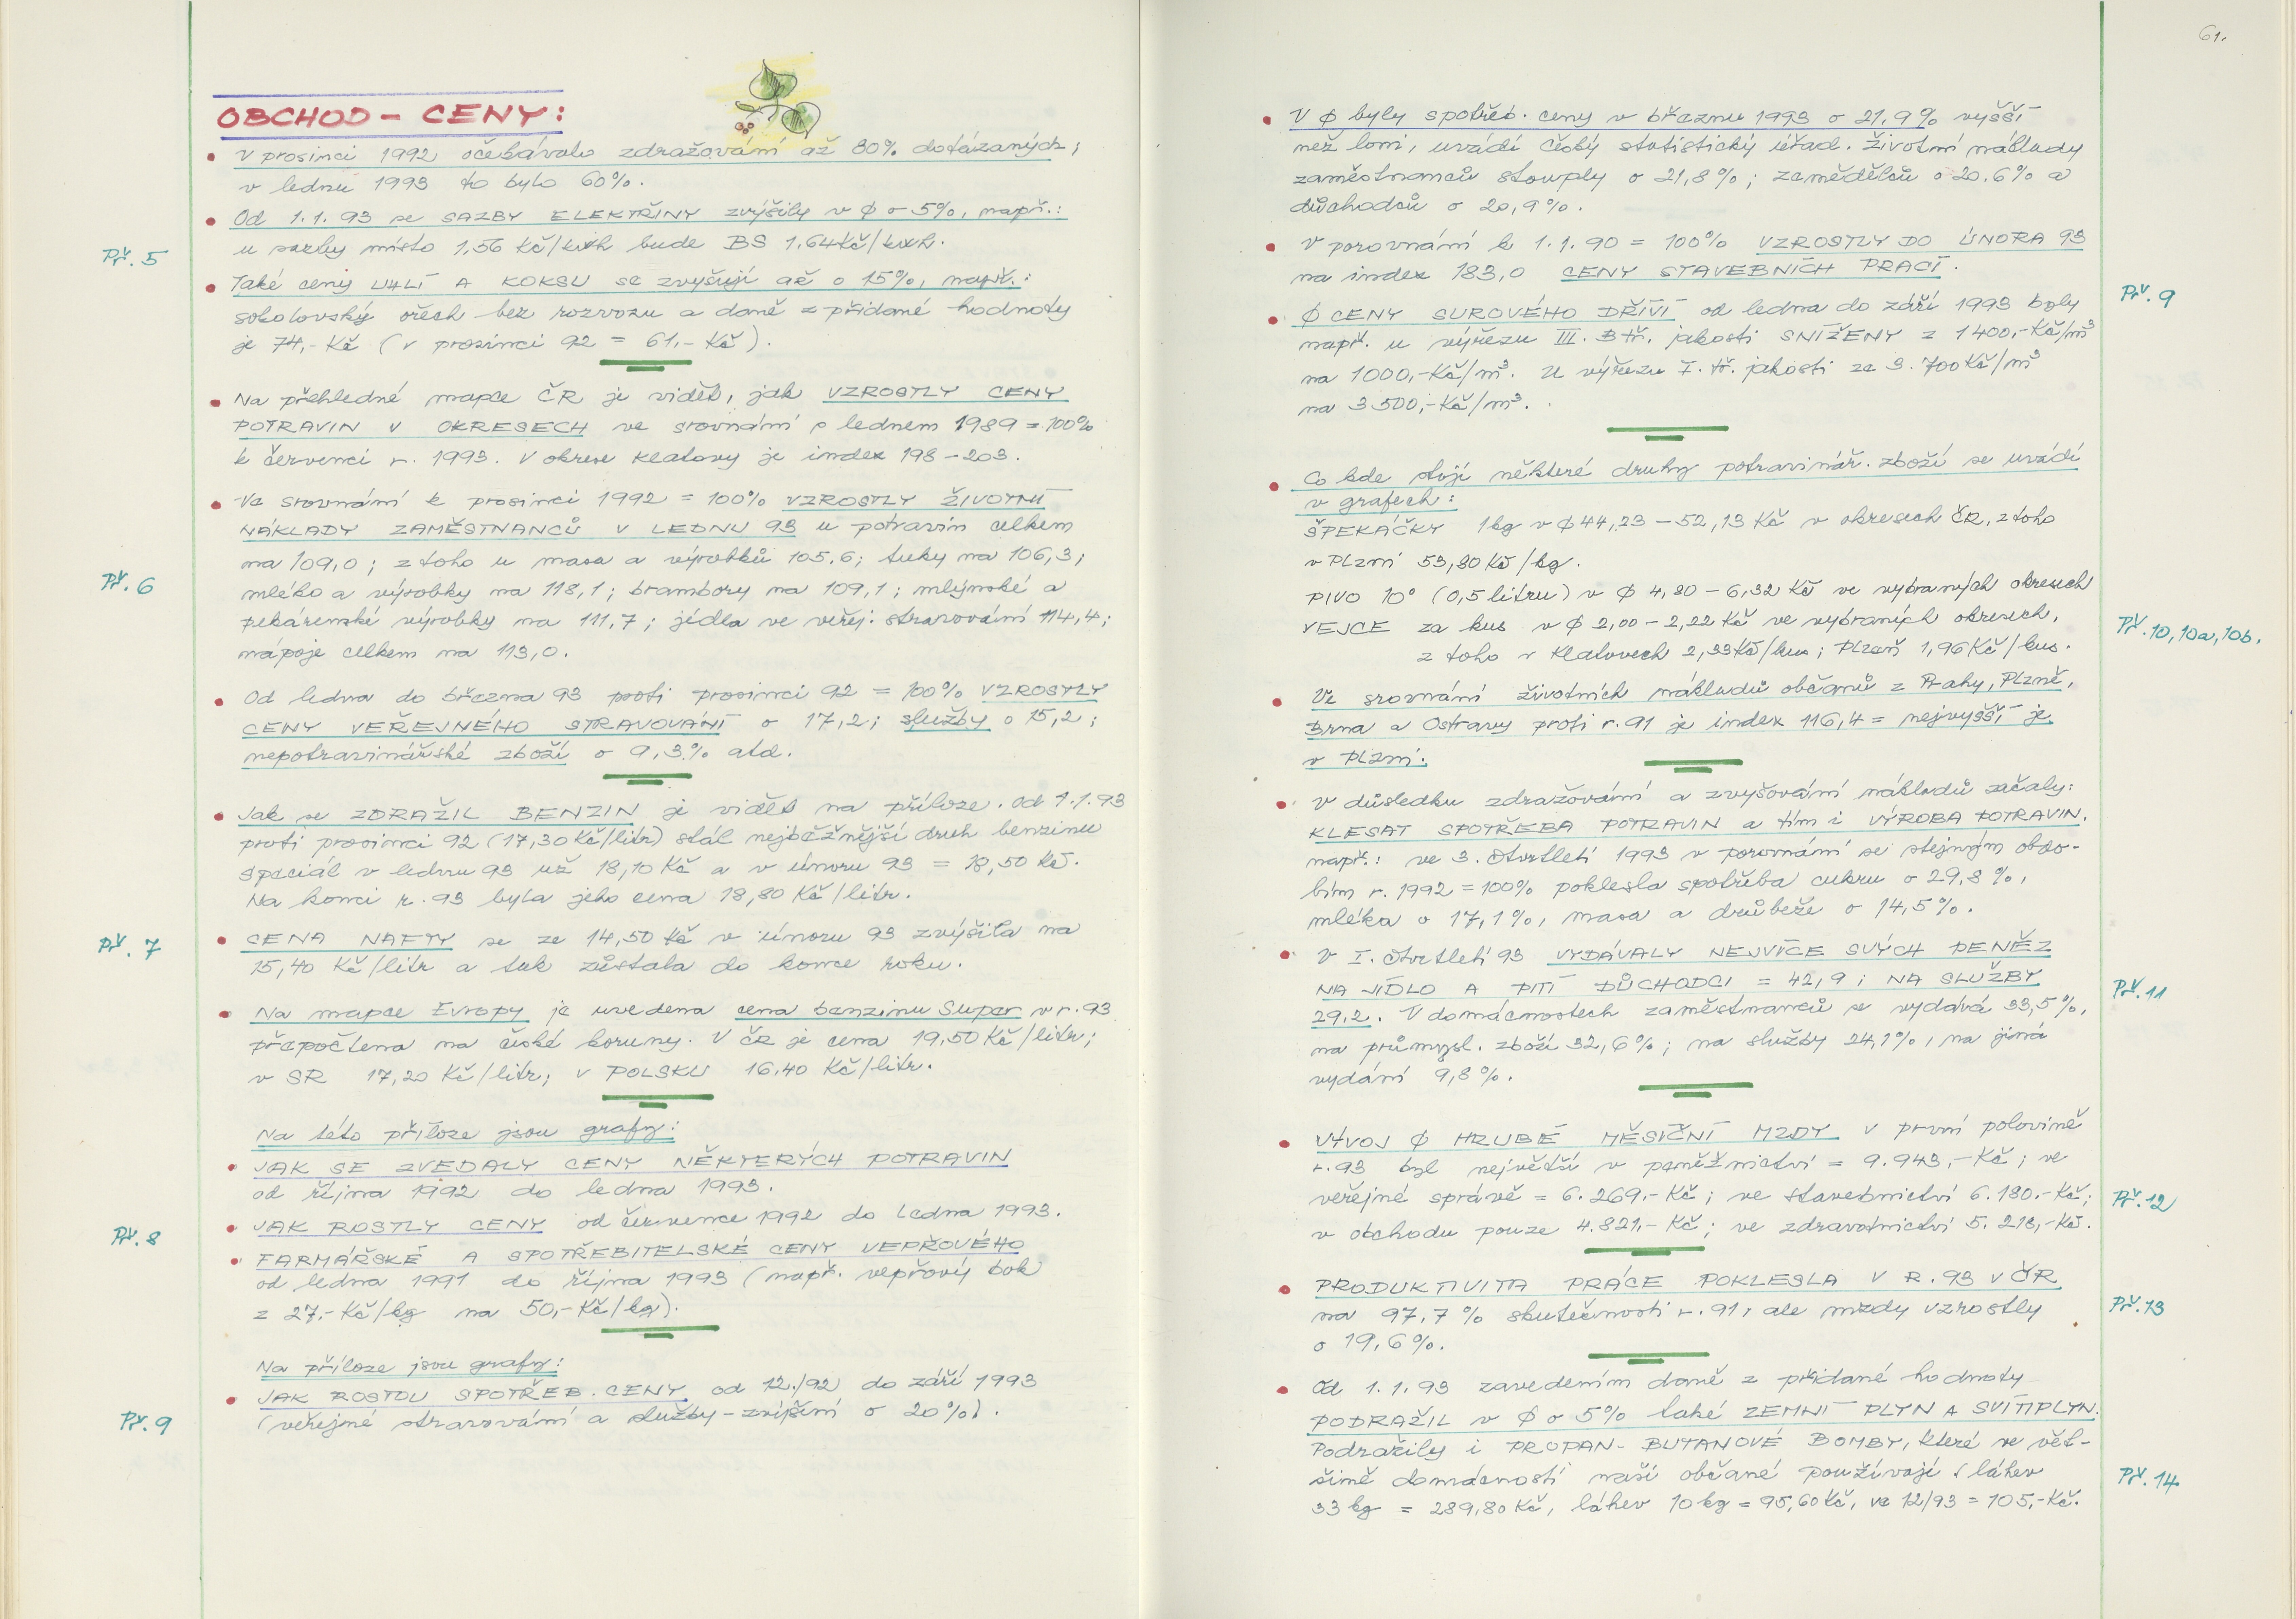 OBCHOD - CENY:
• V prosinci 1992 očekávalo zdražování až 80% dotázaných;
v lednu 1993 to bylo 60%.
• Od 1.1.93 se SAZBY ELEKTŘINY zvýšily v ϕ o 5%, např.:
u sazby místo 1,56 Kč/kWh bude BS 1,64 Kč/kWh.
Př. 5
• Také ceny UHLÍ A KOKSU se zvyšují až o 15%, např.:
sokolovský ořech bez rozvozu a daně z přidané hodnoty
je 74,- Kč (v prosinci 92 = 61,- Kč).
• Na přehledné mapce ČR je vidět, jak VZROSTLY CENY
POTRAVIN V OKRESECH ve srovnání s lednem 1989 = 100%
k červenci r. 1993. V okrese Klatovy je index 198 - 203.
• Ve srovnání k prosinci 1992 = 100% VZROSTLY ŽIVOTNÍ
NÁKLADY ZAMĚSTNANCŮ V LEDNU 93 u potravin celkem
na 109,0; z toho u masa a výrobků 105,6; tuky na 106,3;
Př. 6
mléko a výrobky na 118,1; brambory na 109,1; mlýnské a
pekárenské výrobky na 111,7; jídla ve veřej. stravování 114,4;
nápoje celkem na 113,0.
• Od ledna do března 93 proti prosinci 92 = 100% VZROSTLY
CENY VEŘEJNÉHO STRAVOVÁNÍ o 17,2; služby o 15,2;
nepotravinářské zboží o 9,3% atd.
• Jak se ZDRAŽIL BENZIN je vidět na příloze. Od 1.1.93
proti prosinci 92 (17,30 Kč/litr) stál nejběžnější druh benzinu
Speciál v lednu 93 už 18,10 Kč a v únoru 93 = 18,50 Kč.
Na konci r. 93 byla jeho cena 18,80 Kč/litr.
Př. 7
• CENA NAFTY se ze 14,50 Kč v únoru 93 zvýšila na
15,40 Kč/litr a tak zůstala do konce roku.
• Na mapce Evropy je uvedena cena benzinu Super v r. 93
přepočtena na české koruny. V ČR je cena 19,50 Kč/litr;
v SR 17,20 Kč/litr; v POLSKU 16,40 Kč/litr.
Na této příloze jsou grafy:
• JAK SE ZVEDALY CENY NĚKTERÝCH POTRAVIN
od října 1992 do ledna 1993.
• JAK ROSTLY CENY od července 1992 do ledna 1993.
Př. 8
• FARMÁŘSKÉ A SPOTŘEBITELSKÉ CENY VEPŘOVÉHO
od ledna 1991 do října 1993 (např. vepřový bok
z 27,- Kč/kg na 50,- Kč/kg).
Na příloze jsou grafy:
• JAK ROSTOU SPOTŘEB. CENY od 12./92 do září 1993
Př. 9
(veřejné stravování a služby - zvýšení o 20%).
61.
• V ϕ byly spotřeb. ceny v březnu 1993 o 21,9% vyšší
než loni, uvádí český statistický úřad. Životní náklady
zaměstnanců stouply o 21,8%; zemědělců o 20,6% a
důchodců o 20,9%.
• V porovnání k 1.1.90 = 100% VZROSTLY DO ÚNORA 93
na index 183,0 CENY STAVEBNÍCH PRACÍ.
Př. 9
• ϕ CENY SUROVÉHO DŘÍVÍ od ledna do září 1993 byly
např. u výřezu III. B tř. jakosti SNÍŽENY z 1400,- Kč/m³
na 1000,- Kč/m³. U výřezu I. tř. jakosti ze 3.700 Kč/m³
na 3500,- Kč/m³.
• Co kde stojí některé druhy potravinář. zboží se uvádí
v grafech:
ŠPEKÁČKY 1kg v ϕ 44,23 - 52,13 Kč v okresech ČR, z toho
v Plzni 53,80 Kč/kg.
PIVO 10° (0,5 litru) v ϕ 4,80 - 6,32 Kč ve vybraných okresech
VEJCE za kus v ϕ 2,00 - 2,22 Kč ve vybraných okresech,
Př. 10, 10a, 10b.
z toho v Klatovech 2,33 Kč/kus; Plzeň 1,96 Kč/kus.
• Ve srovnání životních nákladů občanů z Prahy, Plzně,
Brna a Ostravy proti r. 91 je index 116,4 = nejvyšší je
v Plzni.
• V důsledku zdražování a zvyšování nákladů začaly:
KLESAT SPOTŘEBA POTRAVIN a tím i VÝROBA POTRAVIN.
např.: ve 3. čtvrtletí 1993 v porovnání se stejným obdo-
bím r. 1992 = 100% poklesla spotřeba cukru o 29,8%,
mléka o 17,1%, masa a drůbeže o 14,5%.
• V I. čtvrtletí 93 VYDÁVALY NEJVÍCE SVÝCH PENĚZ
NA JÍDLO A PITÍ DŮCHODCI = 42,9; NA SLUŽBY
Př. 11
29,2. V domácnostech zaměstnanců se vydává 33,5%,
na průmysl. zboží 32,6%; na služby 24,1%, na jiná
vydání 9,8%.
• VÝVOJ ϕ HRUBÉ MĚSÍČNÍ MZDY v první polovině
r. 93 byl největší v peněžnictví = 9.943,- Kč; ve
veřejné správě = 6.269,- Kč; ve stavebnictví 6.180,- Kč;
Př. 12
v obchodu pouze 4.821,- Kč; ve zdravotnictví 5.213,- Kč.
• PRODUKTIVITA PRÁCE POKLESLA V R. 93 V ČR
na 97,7% skutečnosti r. 91, ale mzdy vzrostly
Př. 13
o 19,6%.
• Od 1.1.93 zavedením daně z přidané hodnoty
PODRAŽIL v ϕ o 5% také ZEMNÍ PLYN A SVÍTIPLYN.
Podražily i PROPAN-BUTANOVÉ BOMBY, které ve vět-
šině domácností naší občané používají (láhev
Př. 14
33 kg = 289,80 Kč, láhev 10 kg = 95,60 Kč, ve 12/93 = 105,- Kč.